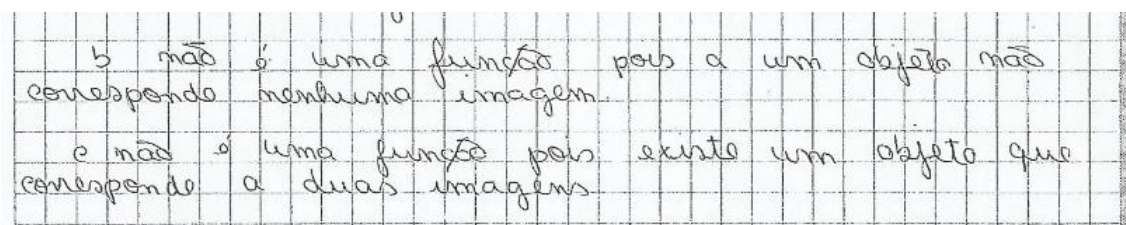 b não é uma função pois a um objeto não
corresponde nenhuma imagem.
c não é uma função pois existe um objeto que
corresponde a duas imagens